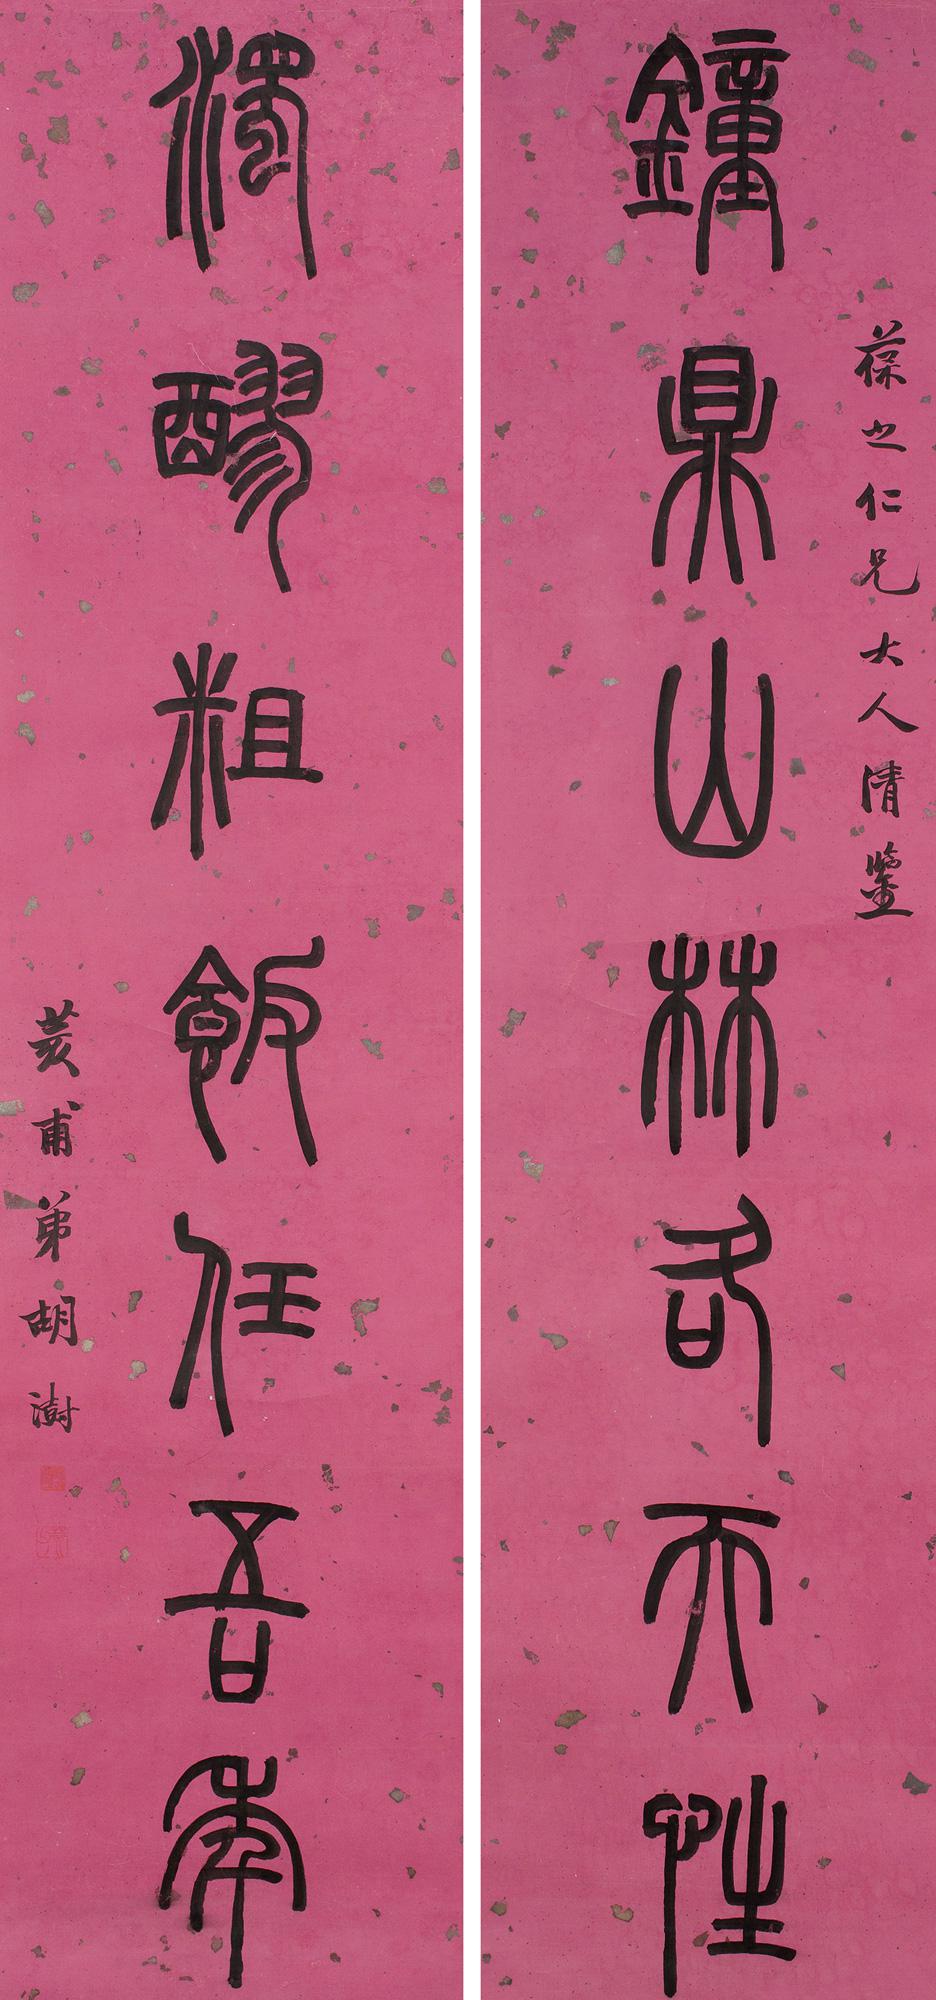 葆之仁兄大人清鑒
鐘鼎山林各天性
濁醪粗飯任吾年
荄甫弟胡澍